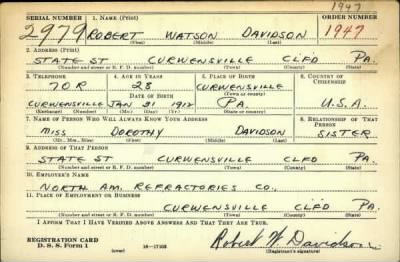 1947
SERIAL NUMBER 1. NAME (Print) ORDER NUMBER
2979 ROBERT WATSON DAVIDSON 1947
(First) (Middle) (Last)
2. ADDRESS (Print)
STATE ST CURWENSVILLE CLFD PA.
(Number and street or R. F. D. number) (Town) (County) (State)
3. TELEPHONE 4. AGE IN YEARS 5. PLACE OF BIRTH 6. COUNTRY OF CITIZENSHIP
70R 28 CURWENSVILLE
(Town or county)
CURWENSVILLE JAN 31 1912 PA. U.S.A.
(Exchange) (Number) (Mo.) (Day) (Yr.) (State or country)
7. NAME OF PERSON WHO WILL ALWAYS KNOW YOUR ADDRESS 8. RELATIONSHIP OF THAT PERSON
MISS DOROTHY DAVIDSON SISTER
(Mr., Mrs., Miss) (First) (Middle) (Last)
9. ADDRESS OF THAT PERSON
STATE ST CURWENSVILLE CLFD PA.
(Number and street or R. F. D. number) (Town) (County) (State)
10. EMPLOYER'S NAME
NORTH AM. REFRACTORIES CO.
11. PLACE OF EMPLOYMENT OR BUSINESS
CURWENSVILLE CLFD PA.
(Number and street or R. F. D. number) (Town) (County) (State)
I AFFIRM THAT I HAVE VERIFIED ABOVE ANSWERS AND THAT THEY ARE TRUE.
REGISTRATION CARD
D. S. S. Form 1 (over) 16—17105 Robert W. Davidson
(Registrant's signature)